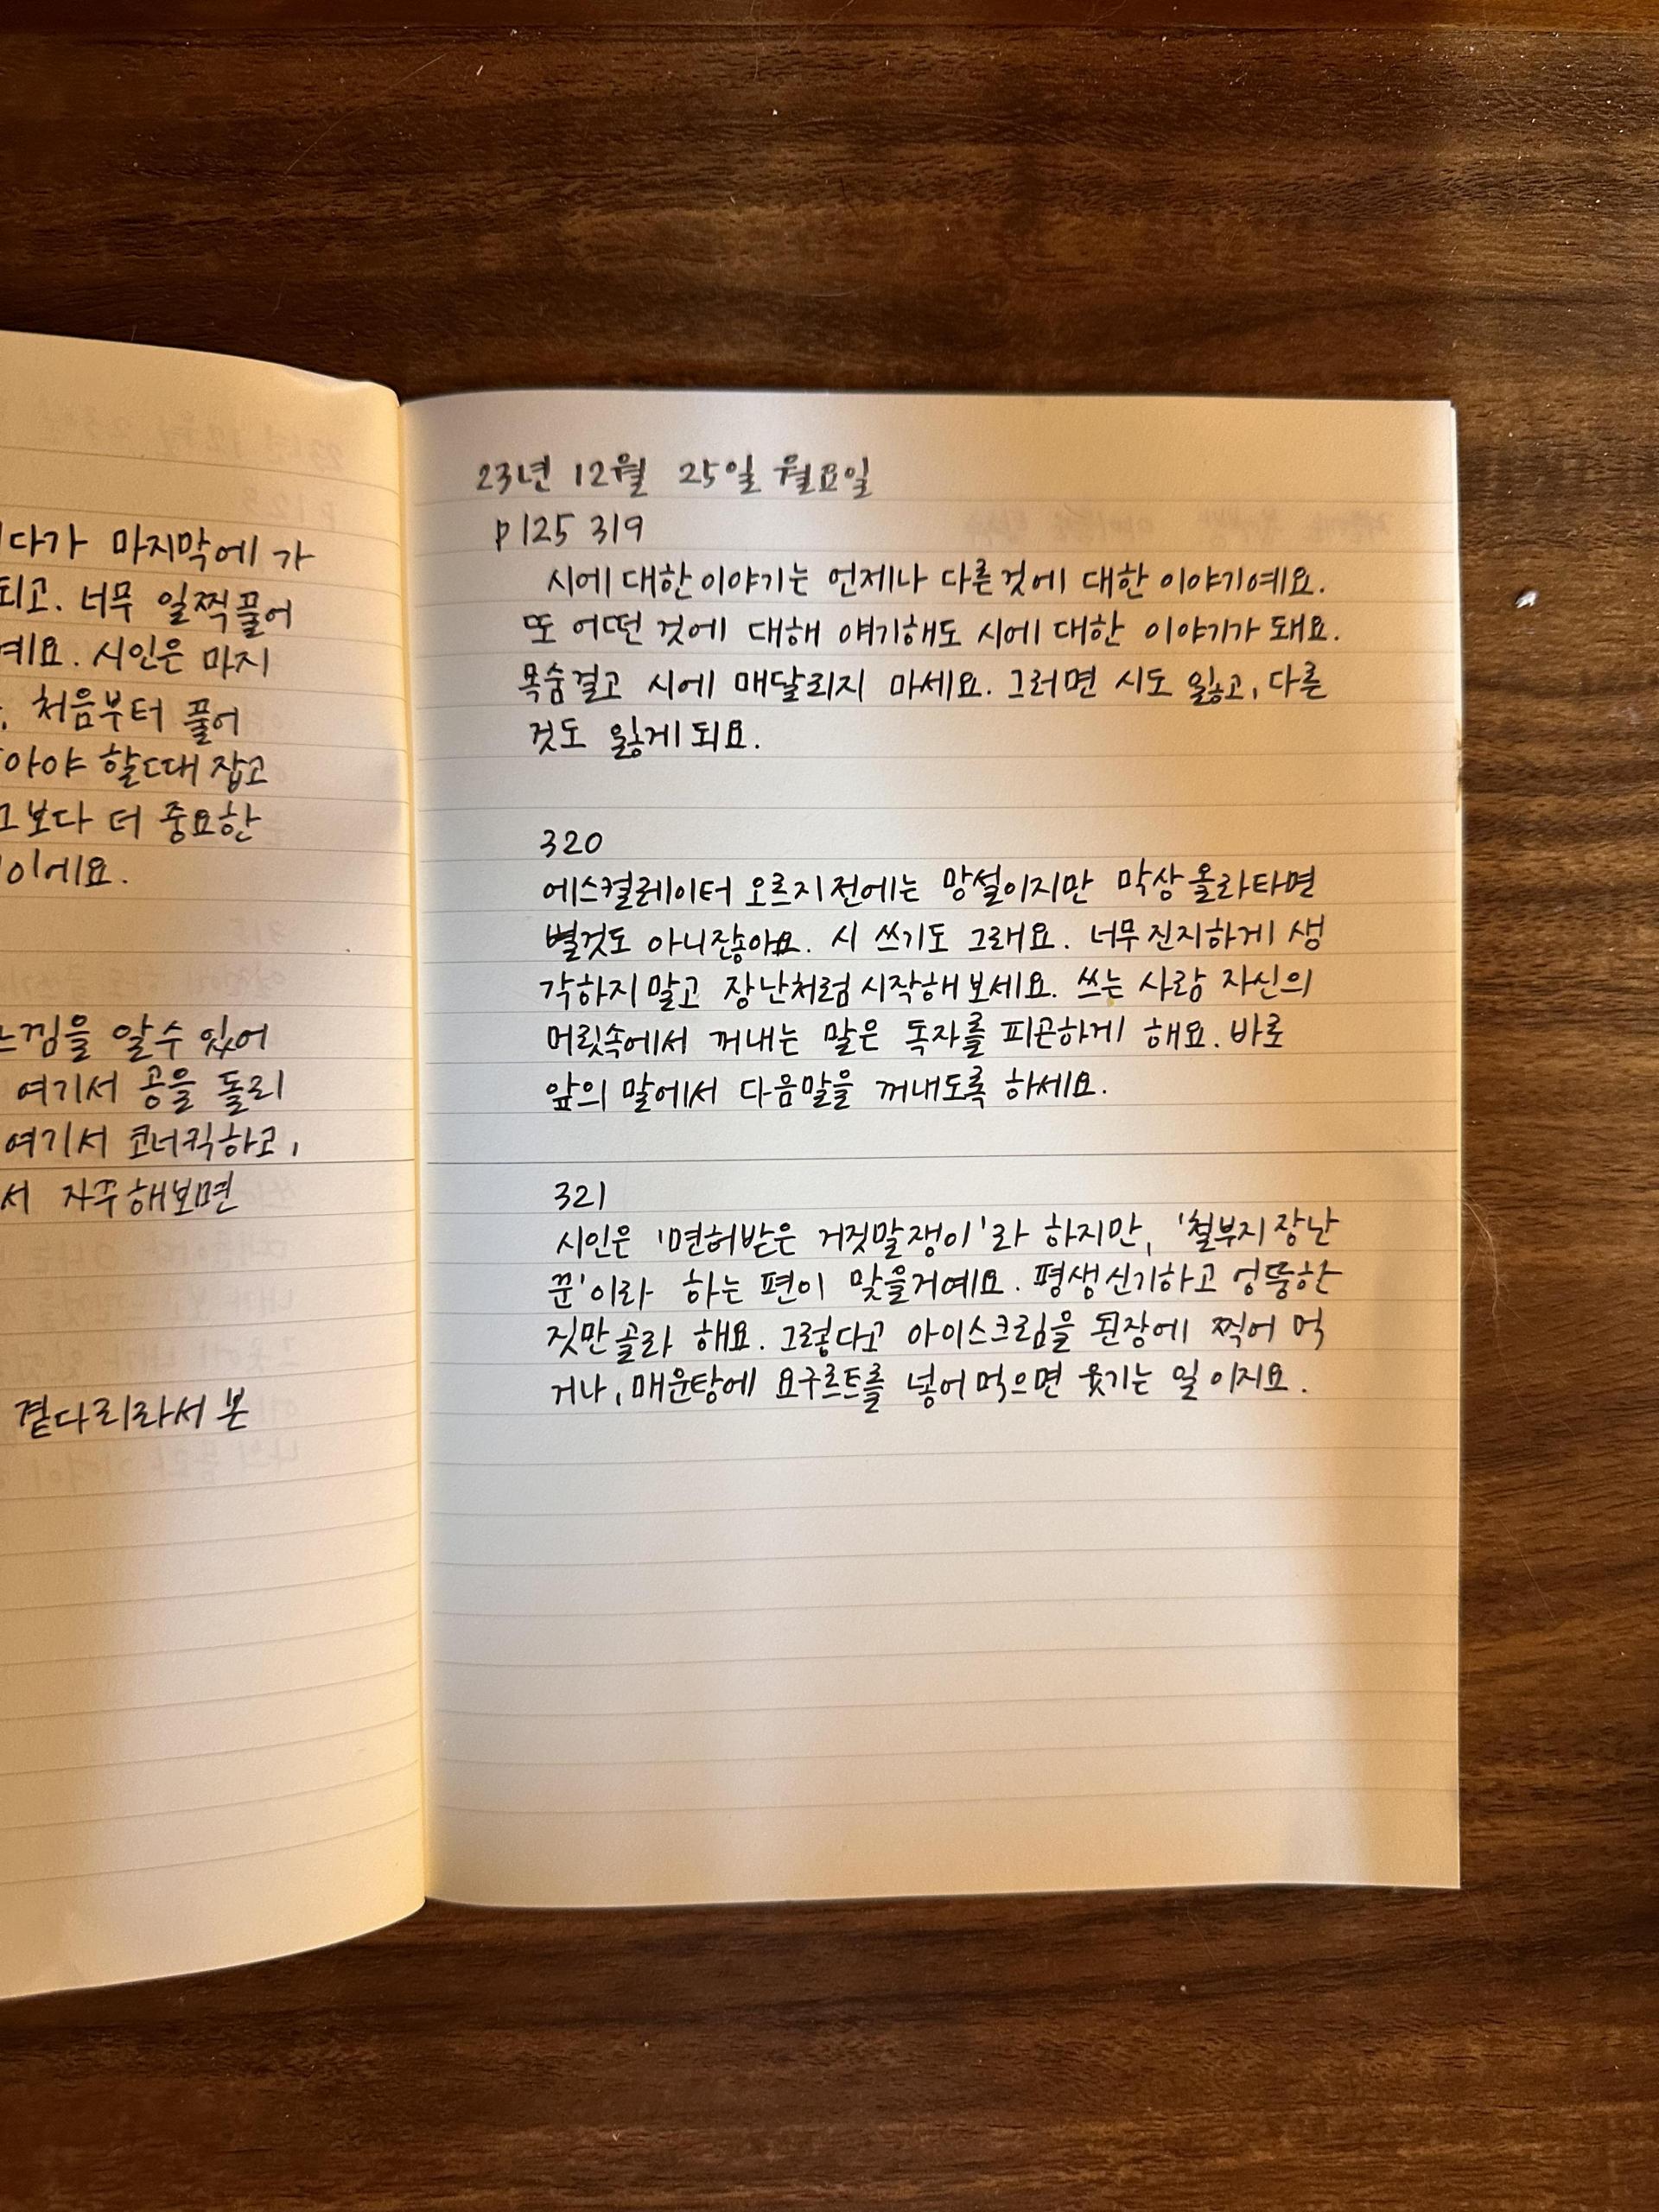 다가 마지막에 가
되고. 너무 일찍 풀어
예요. 시인은 마지
처음부터 풀어
아야 할때 잡고
그보다 더 중요한
이에요.
느낌을 알수 있어
여기서 공을 돌리
여기서 코너킥하고,
서 자주 해보면
곁다리라서 본
23년 12월 25일 월요일
p125 319
시에 대한 이야기는 언제나 다른 것에 대한 이야기예요.
또 어떤 것에 대해 얘기해도 시에 대한 이야기가 돼요.
목숨걸고 시에 매달리지 마세요. 그러면 시도 잃고, 다른
것도 잃게 되요.
320
에스컬레이터 오르지 전에는 망설이지만 막상 올라타면
별것도 아니잖아요. 시 쓰기도 그래요. 너무 진지하게 생
각하지 말고 장난처럼 시작해 보세요. 쓰는 사람 자신의
머릿속에서 꺼내는 말은 독자를 피곤하게 해요. 바로
앞의 말에서 다음말을 꺼내도록 하세요.
321
시인은 '면허받은 거짓말쟁이'라 하지만, '철부지 장난
꾼'이라 하는 편이 맞을거예요. 평생 신기하고 엉뚱한
짓만 골라 해요. 그렇다고 아이스크림을 된장에 찍어 먹
거나, 매운탕에 요구르트를 넣어 먹으면 웃기는 일 이지요.